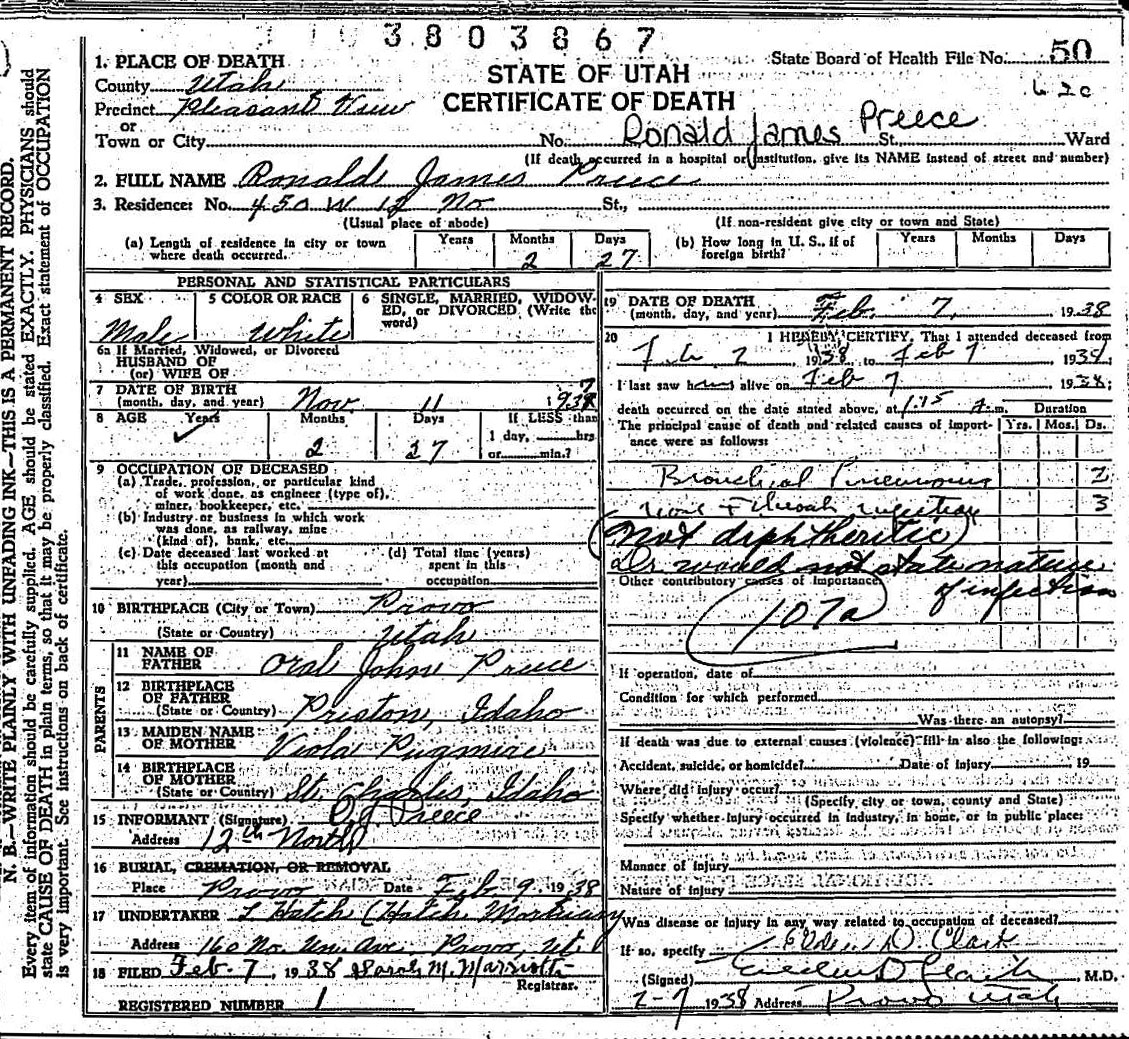 3803867
State Board of Health File No. 50
620
STATE OF UTAH
CERTIFICATE OF DEATH
1. PLACE OF DEATH
County Utah
Precinct Pleasant View
or
Town or City No. Ronald James Preece St., Ward
(If death occurred in a hospital or institution, give its NAME instead of street and number)
2. FULL NAME Ronald James Preece
3. Residence: No. 450 W 12 No St.,
(Usual place of abode) (If non-resident give city or town and State)
(a) Length of residence in city or town where death occurred. Years Months 2 Days 27
(b) How long in U. S., if of foreign birth? Years Months Days
PERSONAL AND STATISTICAL PARTICULARS
4 SEX Male
5 COLOR OR RACE White
6 SINGLE, MARRIED, WIDOWED, or DIVORCED (Write the word)
6a If Married, Widowed, or Divorced
HUSBAND OF
(or) WIFE OF
7 DATE OF BIRTH
(month, day, and year) Nov 11 1937
8 AGE Years Months 2 Days 27 If LESS than
1 day, hrs
or min.?
9 OCCUPATION OF DECEASED
(a) Trade, profession, or particular kind
of work done, as engineer (type of),
miner, bookkeeper, etc.
(b) Industry or business in which work
was done, as railway, mine
(kind of), bank, etc.
(c) Date deceased last worked at
this occupation (month and
year)
(d) Total time (years)
spent in this
occupation
10 BIRTHPLACE (City or Town) Provo
(State or Country) Utah
PARENTS
11 NAME OF
FATHER Oral John Preece
12 BIRTHPLACE
OF FATHER
(State or Country) Preston, Idaho
13 MAIDEN NAME
OF MOTHER Viola Pugmire
14 BIRTHPLACE
OF MOTHER
(State or Country) St. Charles, Idaho
15 INFORMANT (Signature) O J Preece
Address 12th North
16 BURIAL, CREMATION, OR REMOVAL
Place Provo Date Feb 9 1938
17 UNDERTAKER L Hatch (Hatch Mortuary
Address 160 No. Uni. Ave. Provo, Ut.
18 FILED Feb. 7, 1938 Sarah M. Marriott
Registrar.
REGISTERED NUMBER 1
19 DATE OF DEATH
(month, day, and year) Feb. 7, 1938
20 I HEREBY CERTIFY, That I attended deceased from
Feb 2 1938 to Feb 7 1938
I last saw him alive on Feb 7 1938;
death occurred on the date stated above, at 1.15 a.m. Duration
The principal cause of death and related causes of importance were as follows: Yrs. Mos. Ds.
Bronchial Pneumonia 2
Throat infection 3
(Not diphtheritic)
Dr would not state nature
of infection
Other contributory causes of importance
107a
If operation, date of
Condition for which performed
Was there an autopsy?
If death was due to external causes (violence) fill in also the following:
Accident, suicide, or homicide? Date of Injury 19
Where did injury occur?
(Specify city or town, county and State)
Specify whether injury occurred in industry, in home, or in public place:
Manner of Injury
Nature of Injury
Was disease or injury in any way related to occupation of deceased?
If so, specify D. Clark
(Signed) D Clark M.D.
2-7 1938 Address Provo Utah
N. B.—WRITE PLAINLY WITH UNFADING INK—THIS IS A PERMANENT RECORD.
Every item of information should be carefully supplied. AGE should be stated EXACTLY. PHYSICIANS should
state CAUSE OF DEATH in plain terms, so that it may be properly classified. Exact statement of OCCUPATION
is very important. See instructions on back of certificate.